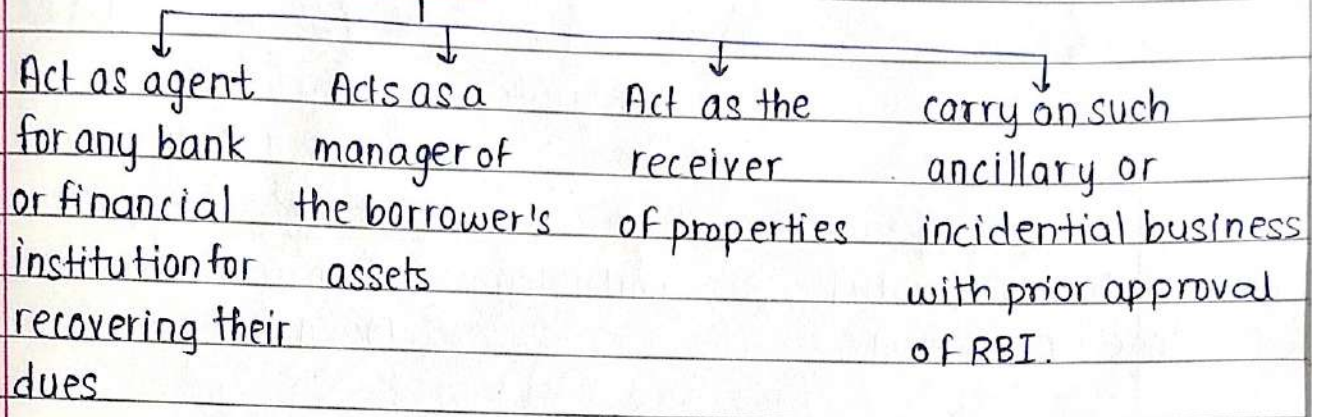 Act as agent
for any bank
or financial
institution for
recovering their
dues
Acts as a
manager of
the borrower's
assets
Act as the
receiver
of properties
carry on such
ancillary or
incidential business
with prior approval
of RBI.